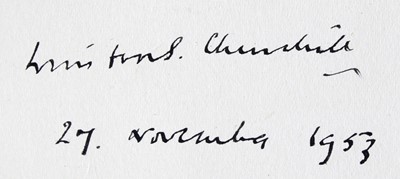 Winston S. Churchill
27. November 1953